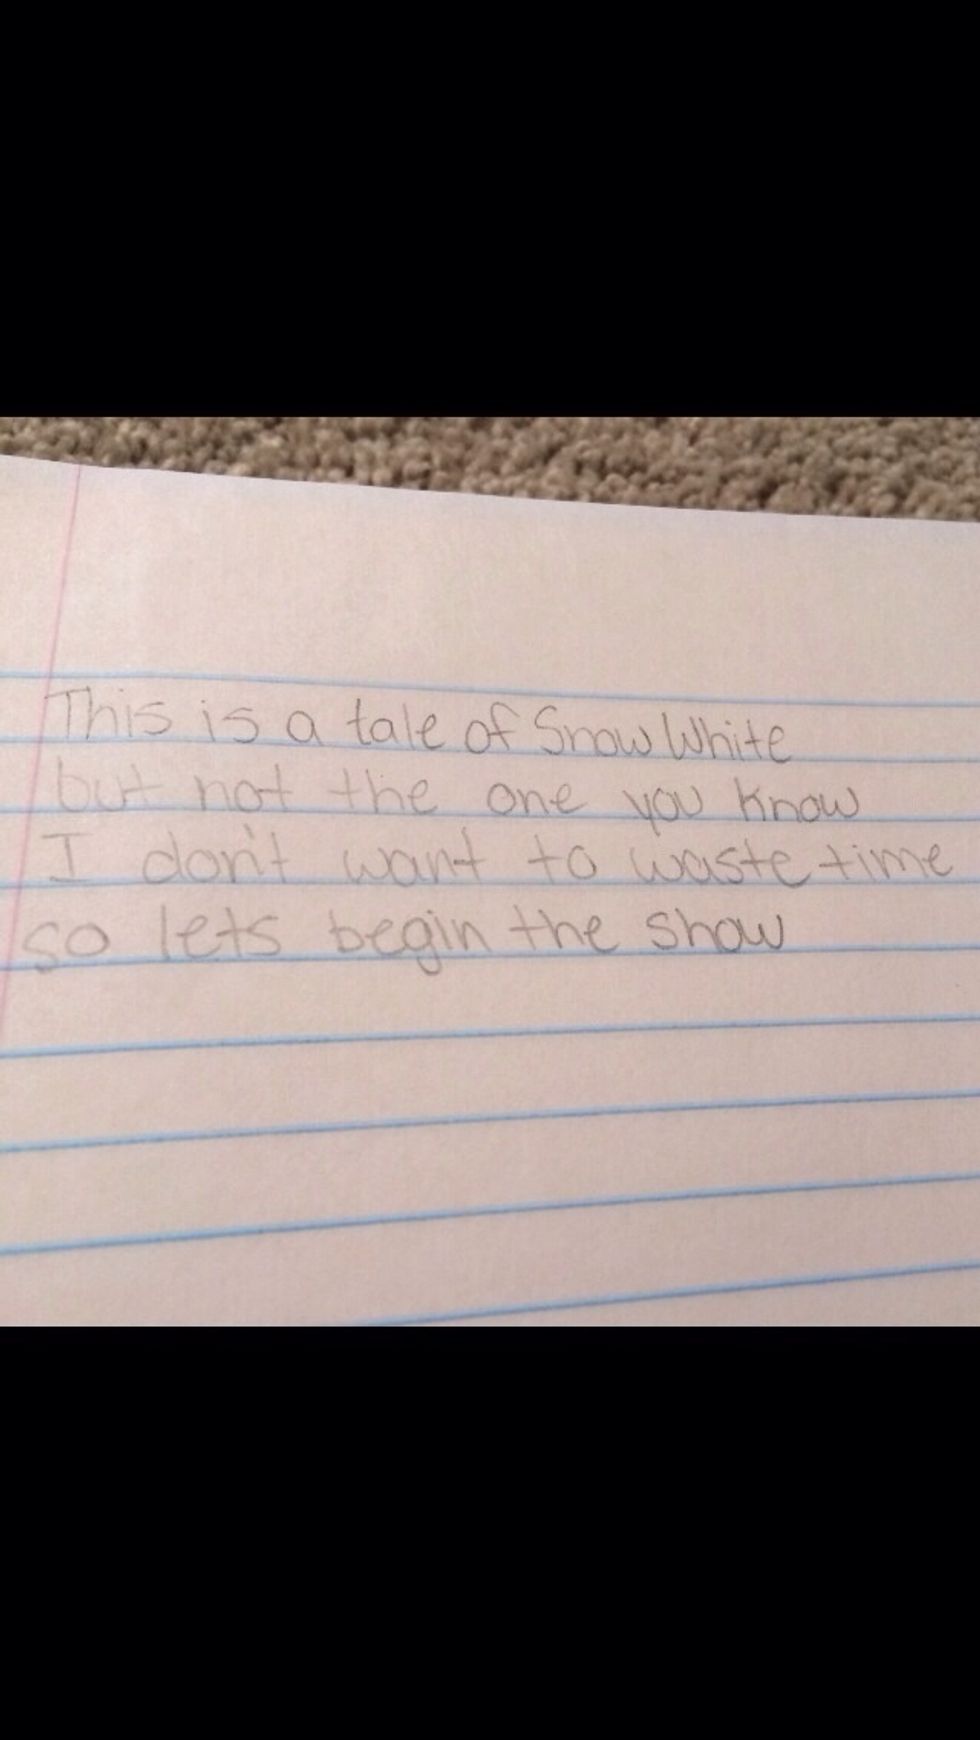 This is a tale of Snow White
but not the one you know
I don't want to waste time
so lets begin the show